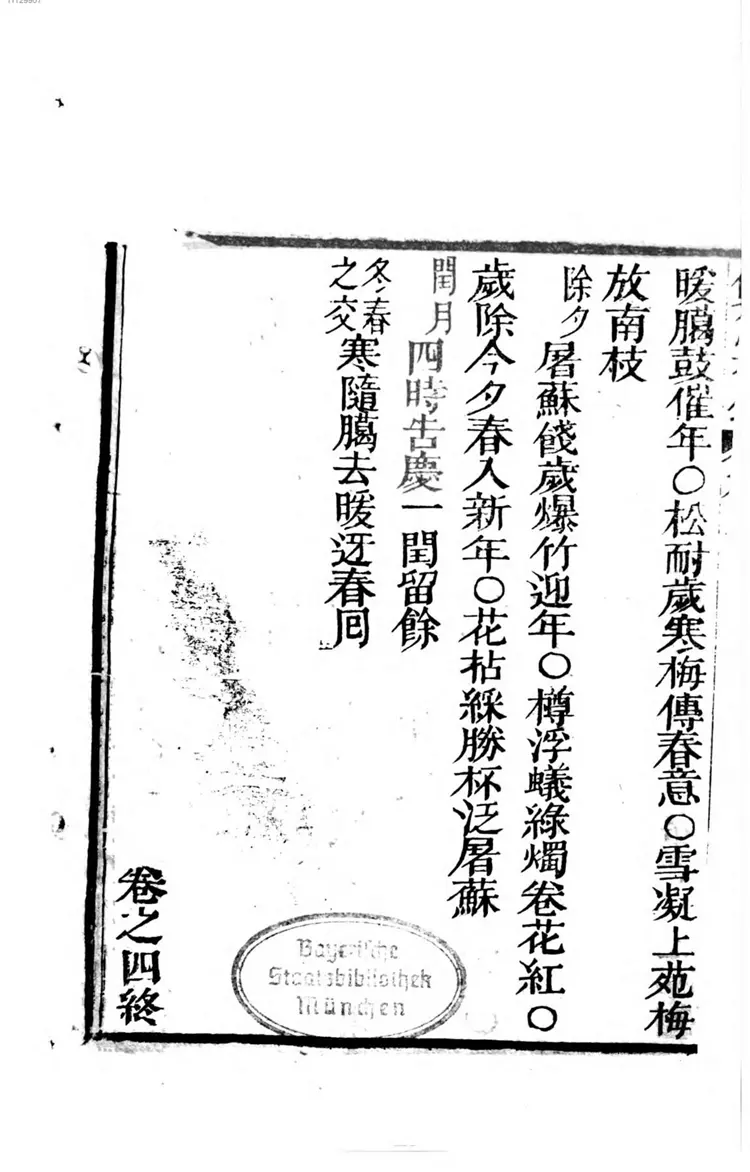 暖臈鼓催年〇松耐歲寒梅傳春意〇雪凝上苑梅
放南枝
除夕屠蘇餞歲爆竹迎年〇樽浮蟻綠燭卷花紅〇
歲除今夕春入新年〇花拈綵勝杯泛屠蘇
閏月四時告慶一閏留餘
冬春之交寒隨臈去暖迓春囘
卷之四終
Bayerische
Staatsbibliothek
München